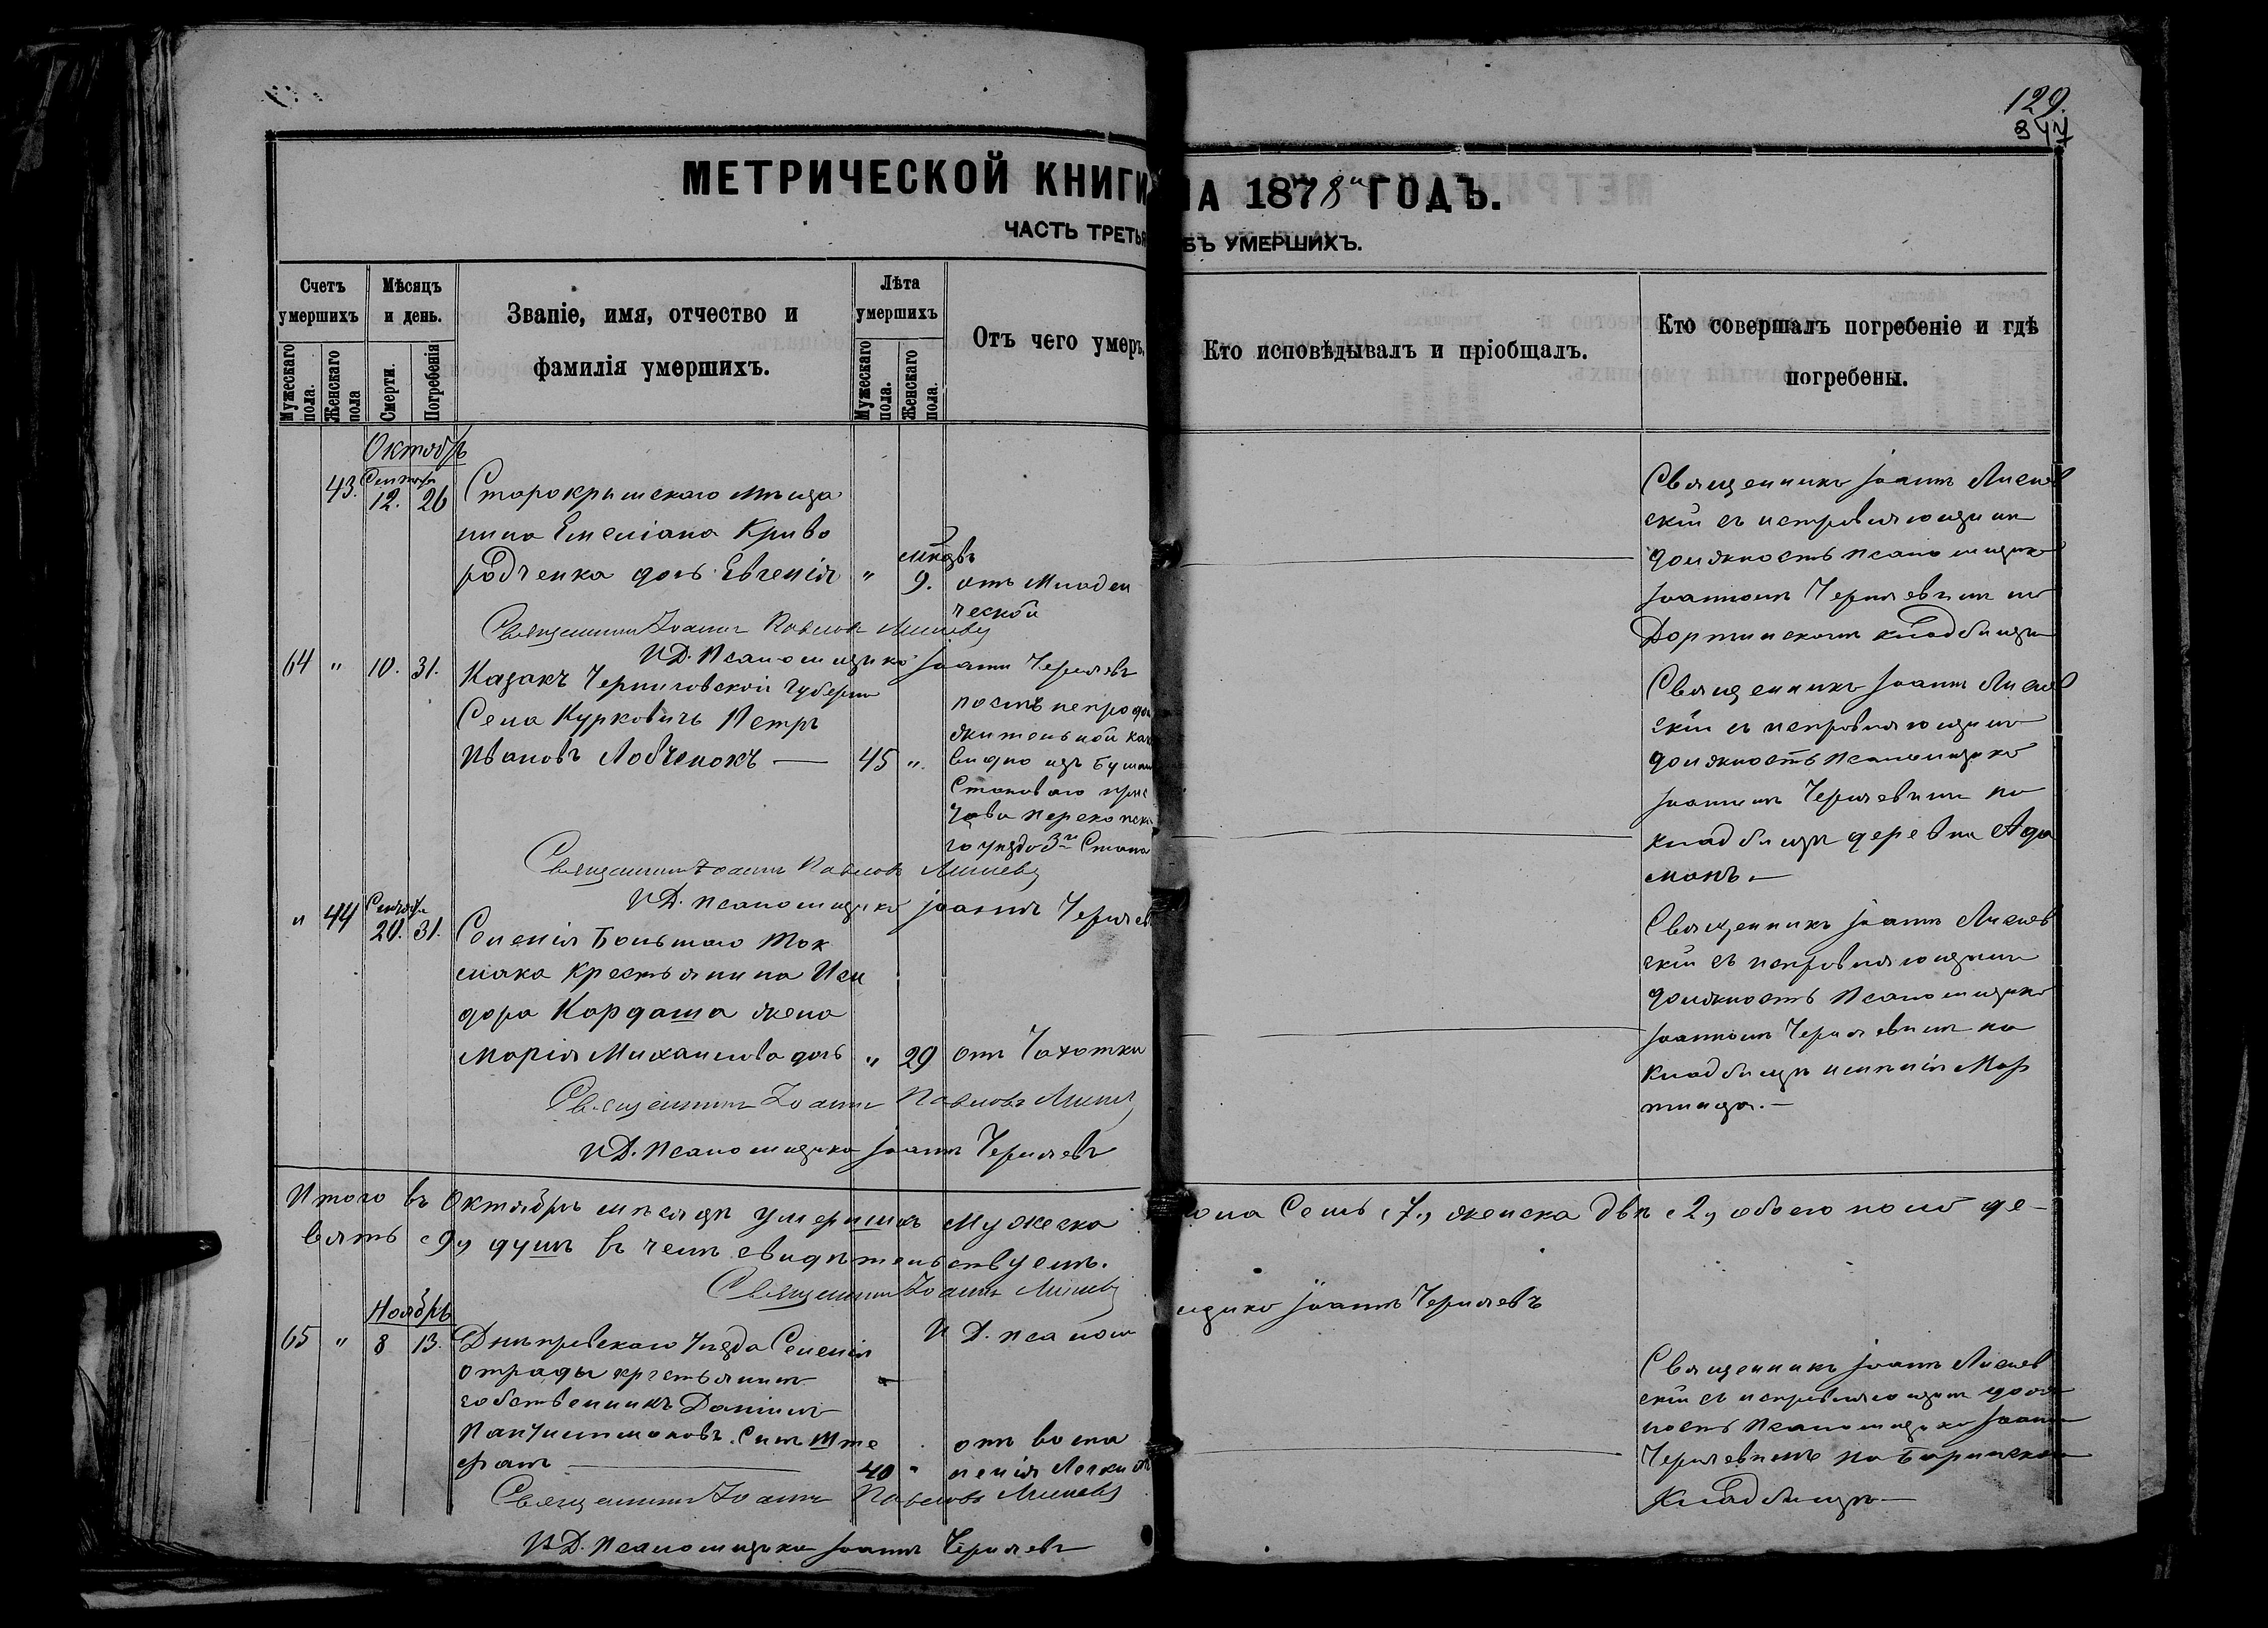 129.
МЕТРИЧЕСКОЙ КНИГИ НА 1878й ГОДЪ.
ЧАСТЬ ТРЕТЬЯ БЪ УМЕРШИХЪ.
Счетъ умершихъ
Мужескаго пола.
Женскаго пола
Мѣсяцъ и день.
Смерти.
Погребенія
Званіе, имя, отчество и
фамилія умершихъ.
Лѣта умершихъ
Мужескаго пола.
Женскаго пола.
Отъ чего умеръ.
Кто исповѣдывалъ и пріобщалъ.
Кто совершалъ погребеніе и гдѣ
погребены.
Октябрь
43. Сентябр
12. 26
Старокрымскаго мѣща
нина Емеліана Криво
родченка дочь Евгенія " 9. мѣсяцъ
отъ младен
ческой
Священникъ Іоаннъ
скій съ исправляющимъ
должность псаломщика
Іоанномъ Чернявымъ на
кладбищѣ
Священникъ Іоаннъ Павловъ
И.Д. Псаломщика Іоаннъ Чернявъ
64 " 10. 31.
Казакъ Черниговской губерніи
Села Курковичъ Петръ
Ивановъ Лобченокъ — 45 "
видно изъ бумаги
Становаго прис
тава Перекопска
го уѣзда 3го Стана
Священникъ Іоаннъ
скій съ исправляющимъ
должность псаломщика
Іоанномъ Чернявымъ на
кладбищѣ деревни Ада
манъ.—
Священникъ Іоаннъ Павловъ
И.Д. псаломщика Іоаннъ Чернявъ
" 44 Сентября
20. 31.
Селенія Большаго Ток
мака крестьянина Иси
дора Кардаша жена
Марія Михаилова дочь " 29 отъ Чахотки
Священникъ Іоаннъ
скій съ исправляющимъ
должность Псаломщика
Іоанномъ Чернявымъ на
кладбищѣ имѣнія Мар
Священникъ Іоаннъ Павловъ
И.Д. Псаломщика Іоаннъ Чернявъ
Итого въ Октябрѣ мѣсяцѣ умершихъ Мужеска пола Семь "7" женска двѣ "2" обоего пола де-
вять "9" душъ въ чемъ свидѣтельствуемъ.
Священникъ Іоаннъ
И.Д. псаломщика Іоаннъ Чернявъ
Ноябрь
65 " 8 13.
Днѣпровскаго Уѣзда Селенія
отрады крестьянинъ
собственникъ Даніилъ
Сынъ
40 " отъ воспа
ленія Легкихъ
Священникъ Іоаннъ
скій съ исправляющимъ долж
ность Псаломщика Іоанномъ
Чернявымъ на
кладбищѣ—
Священникъ Іоаннъ Павловъ
И.Д. Псаломщика Іоаннъ Чернявъ